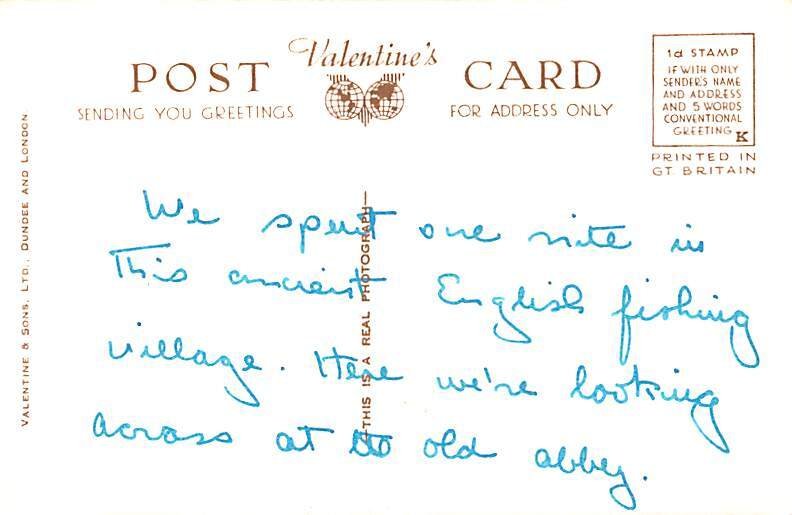 Valentine's
POST CARD
SENDING YOU GREETINGS
FOR ADDRESS ONLY
1d STAMP
IF WITH ONLY
SENDER'S NAME
AND ADDRESS
AND 5 WORDS
CONVENTIONAL
GREETING K
PRINTED IN
GT. BRITAIN
VALENTINE & SONS, LTD., DUNDEE AND LONDON.
THIS IS A REAL PHOTOGRAPH
We spent one nite in
This ancient English fishing
village. Here we're looking
across at the old abbey.